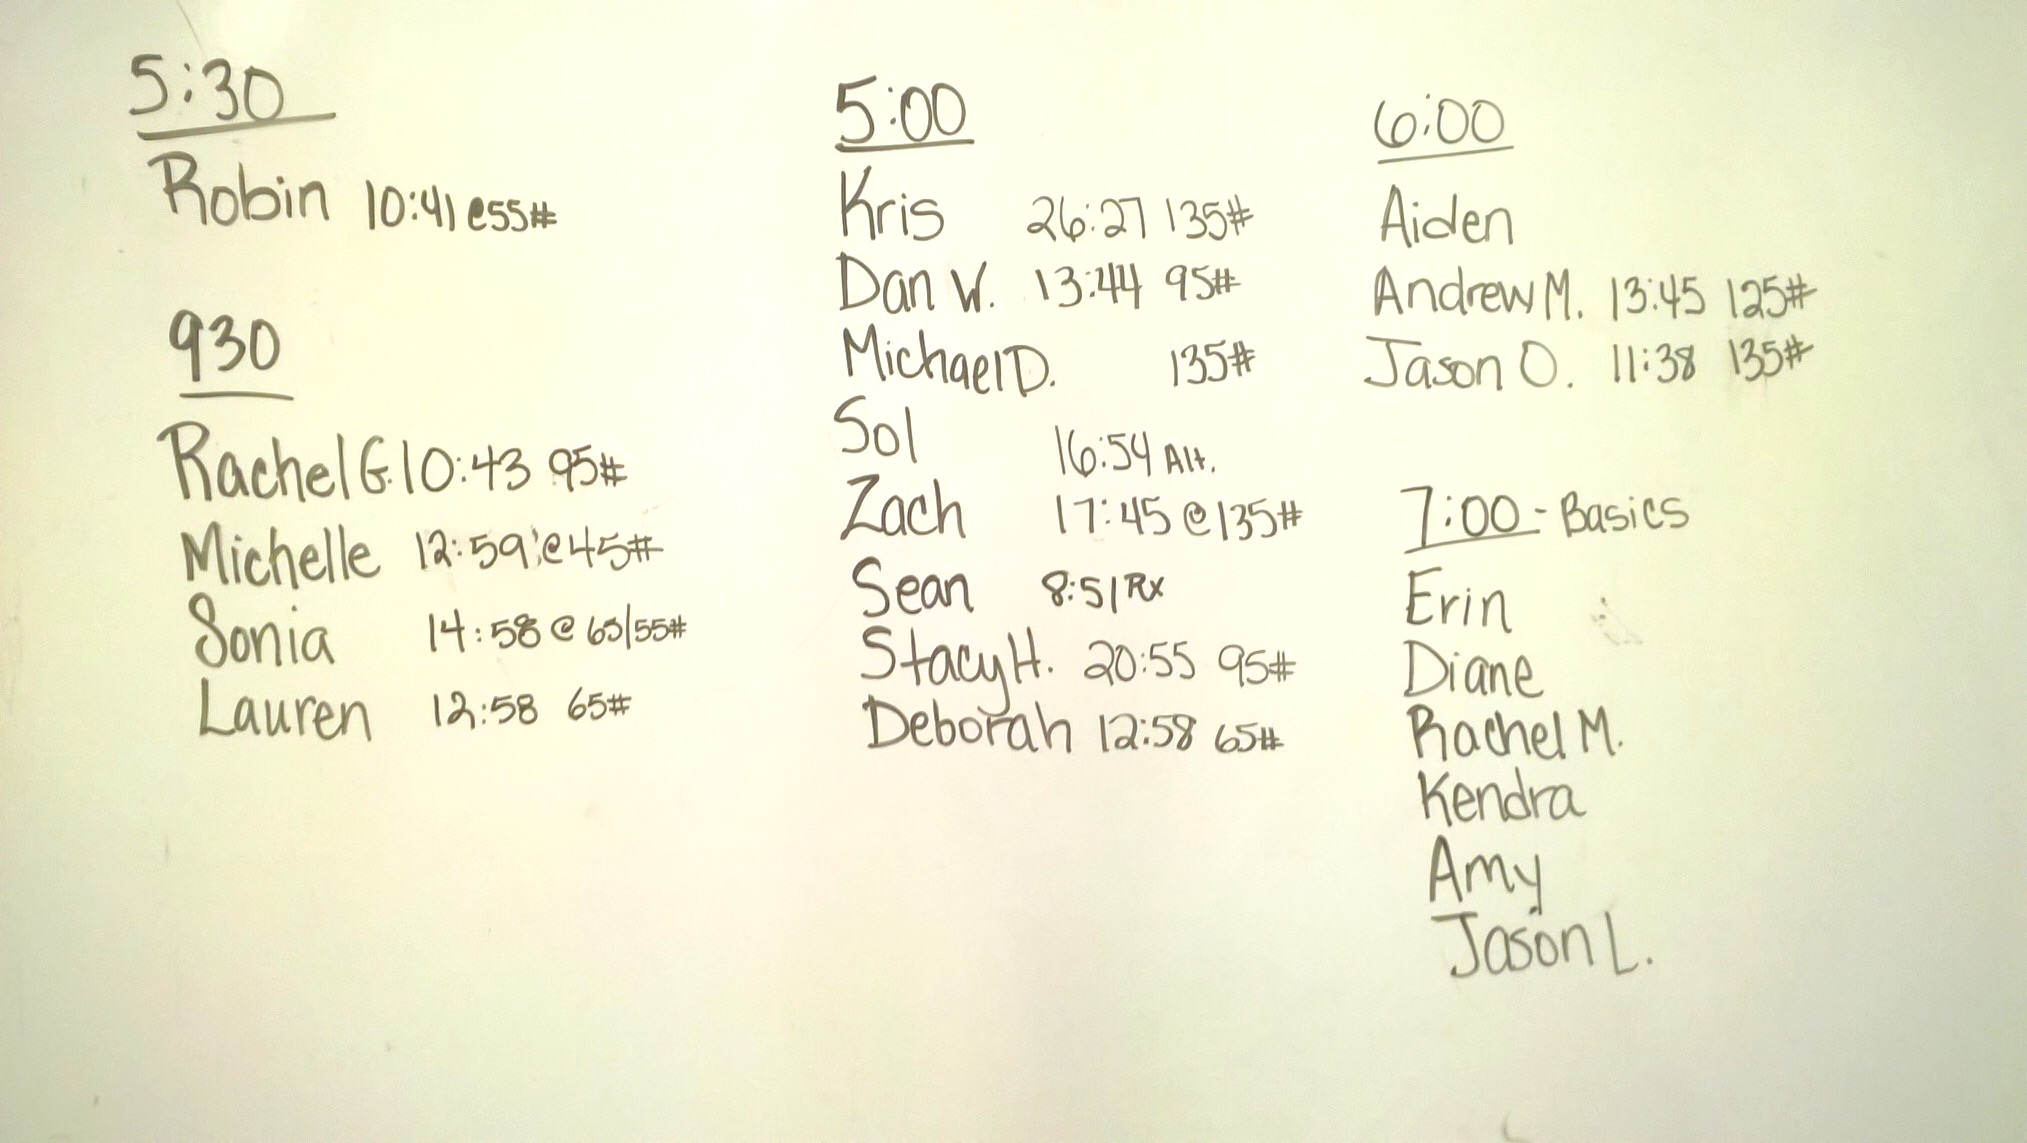 5:30
Robin 10:41 @55#
930
Rachel G. 10:43 95#
Michelle 12:59 @45#
Sonia 14:58 @ 65/55#
Lauren 12:58 65#
5:00
Kris 26:27 135#
Dan W. 13:44 95#
Michael D. 135#
Sol 16:54 Alt.
Zach 17:45 @135#
Sean 8:51 Rx
Stacy H. 20:55 95#
Deborah 12:58 65#
6:00
Aiden
Andrew M. 13:45 125#
Jason O. 11:38 135#
7:00 - Basics
Erin
Diane
Rachel M.
Kendra
Amy
Jason L.